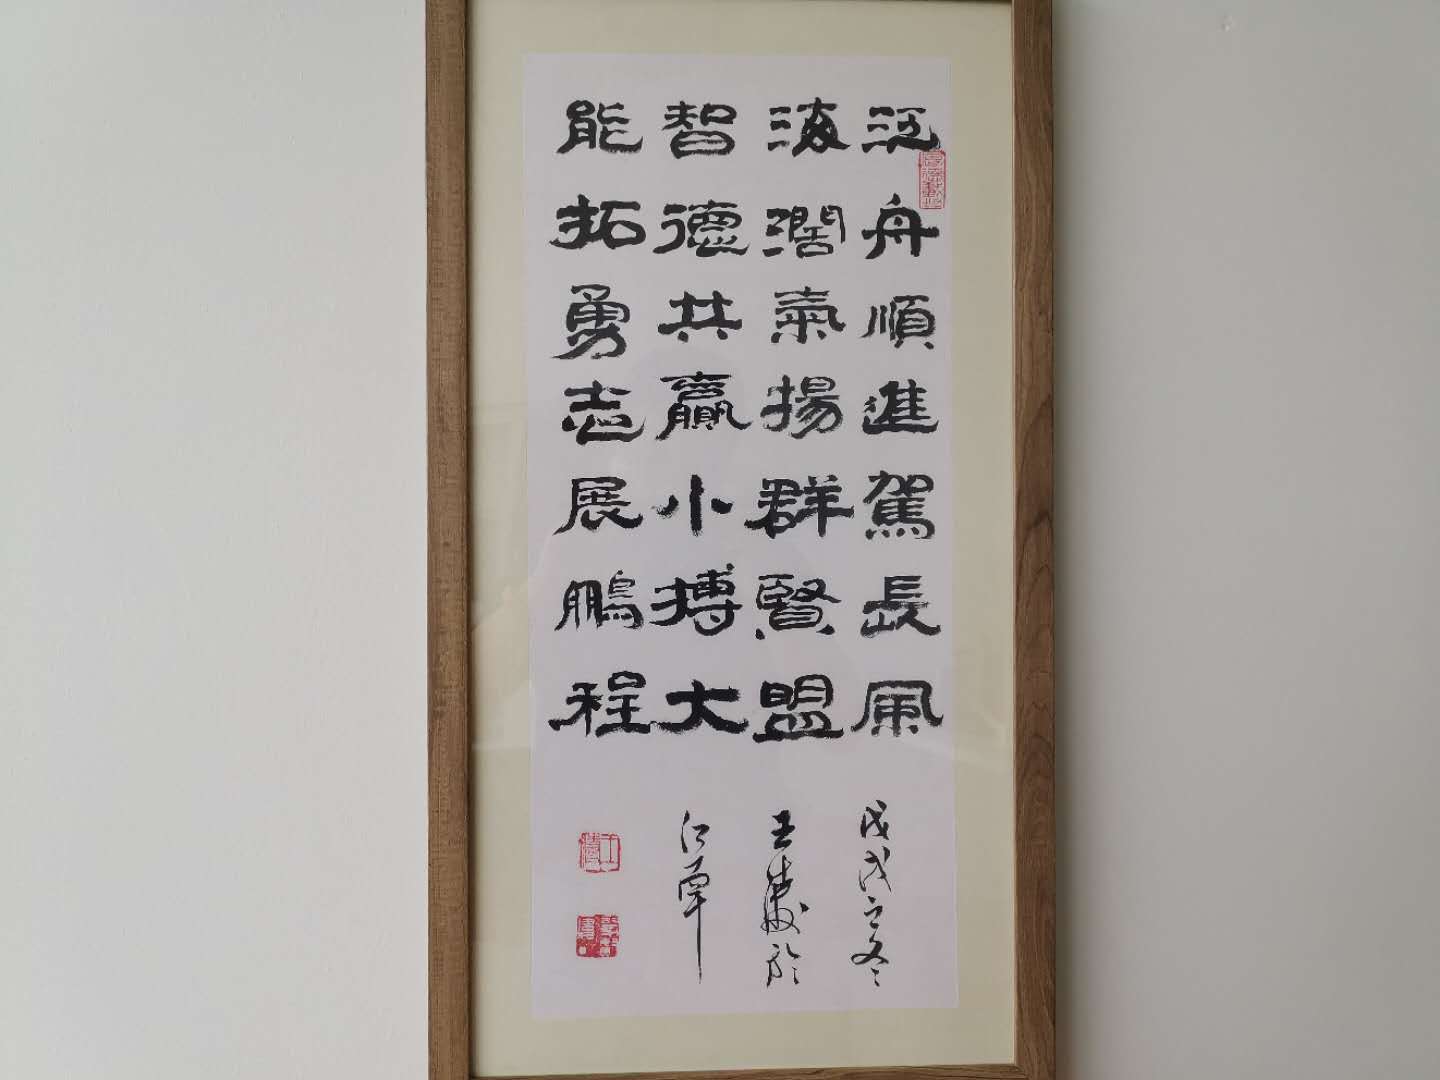 江舟順進駕長風
海濶氣揚群賢盟
智德共贏小搏大
能拓勇志展鵬程
戊戌之冬
王
於
江草